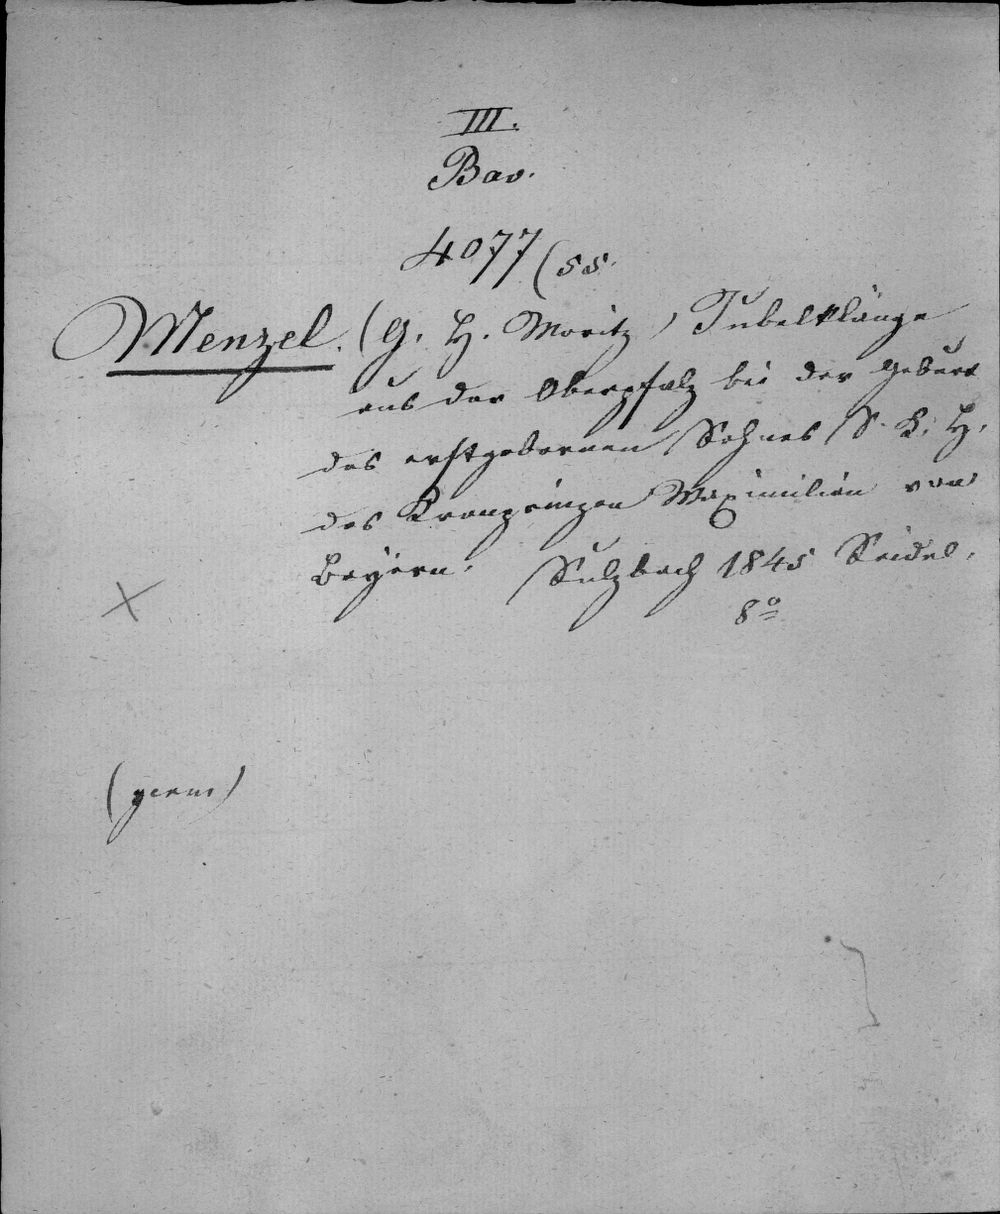 III.
Bav.
4077 (55.
Menzel. (G. H. Moritz) Jubelklänge
aus der Oberpfalz bei der Geburt
des erstgebornen Sohnes S. K. H.
des Kronprinzen Maximilian von
Bayern. Sulzbach 1845 Seidel.
8°
(germ)